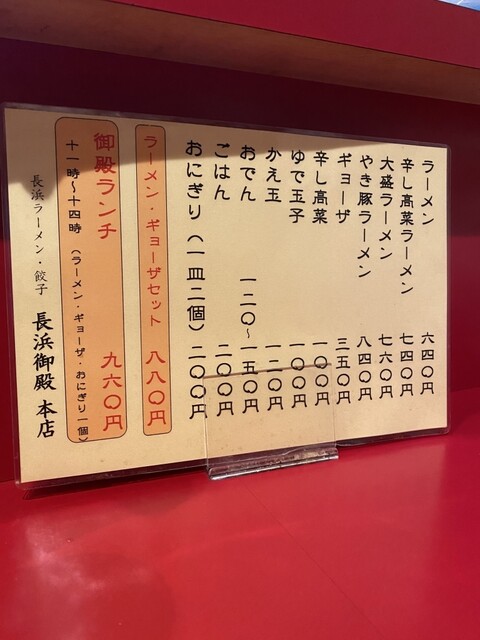 ラーメン 六四〇円
辛し高菜ラーメン 七四〇円
大盛ラーメン 七六〇円
やき豚ラーメン 八四〇円
ギョーザ 三五〇円
辛し高菜 一〇〇円
ゆで玉子 一〇〇円
かえ玉 一二〇円
おでん 一二〇～一五〇円
ごはん 二〇〇円
おにぎり（一皿二個） 二〇〇円
ラーメン・ギョーザセット 八八〇円
御殿ランチ 九六〇円
十一時～十四時（ラーメン・ギョーザ・おにぎり一個）
長浜ラーメン・餃子 長浜御殿 本店